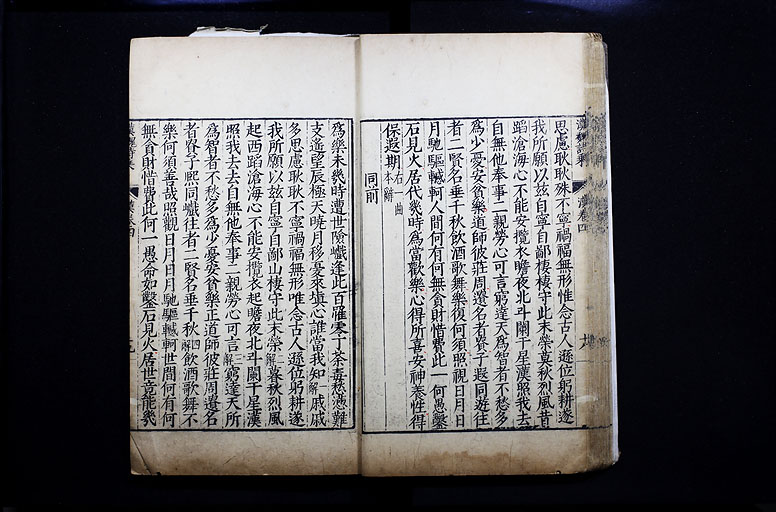 思慮耿耿殊不寧禍福無形惟念古人遜位躬耕遂
我所願以兹自寧自鄙棲棲守此末榮莫秋烈風昔
蹈滄海心不能安攬衣瞻夜北斗闌干星漢照我去
自無他奉事二親勞心可言窮達天為智者不愁多
為少憂安貧樂道師彼莊周遺名者貴子遐同遊往
者二賢名垂千秋飲酒歌舞樂復何須照視日月日
月馳驅轗軻人間何有何無貪財惜費此一何愚鑿
石見火居代幾時為當歡樂心得所喜安神養性得
保遐期右一曲本辭
同前
為樂未幾時遭世險巇逢此百罹零丁荼毒愁懣難
支遙望辰極天曉月移憂來塡心誰當我知一解戚戚
多思慮耿耿不寧禍福無形唯念古人遜位躬耕遂
我所願以兹自寧自鄙山棲守此末榮二解暮秋烈風
起西蹈滄海心不能安攬衣起瞻夜北斗闌干星漢
照我去去自無他奉事二親勞心可言三解窮達天所
為智者不愁多為少憂安貧樂正道師彼莊周遺名
者貴子熙同巇往者二賢名垂千秋四解飲酒歌舞不
樂何須善哉照觀日月日月馳驅轗軻世間何有何
無貪財惜費此何一愚命如鑿石見火居世竟能幾